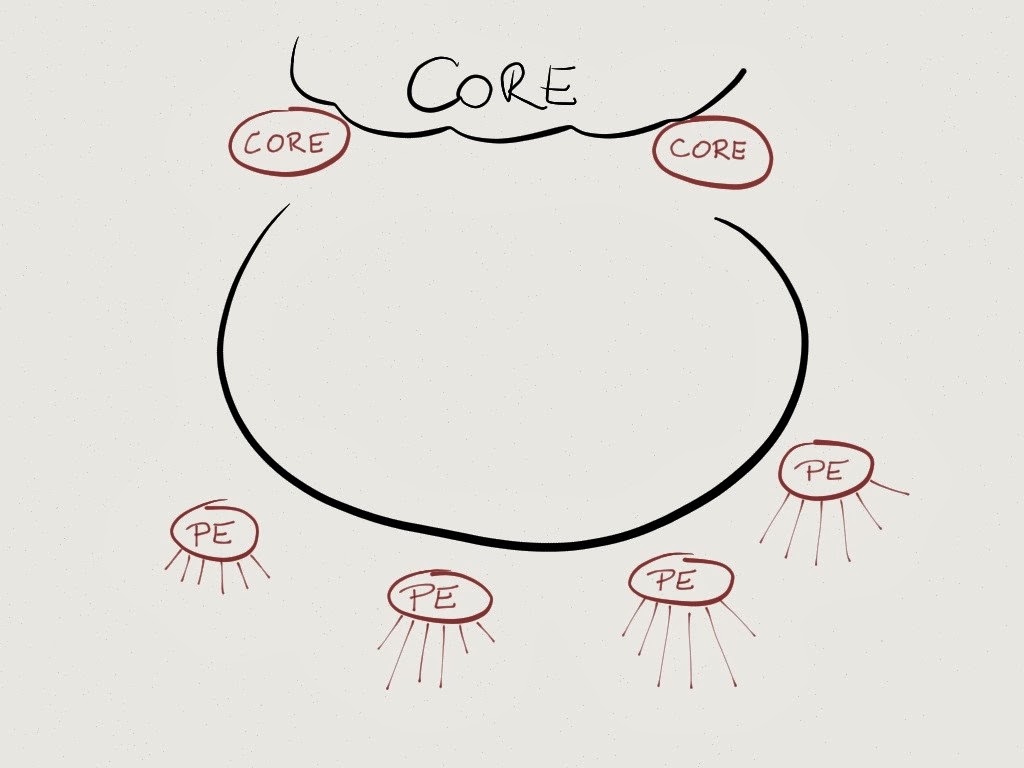 CORE
CORE
CORE
PE
PE
PE
PE